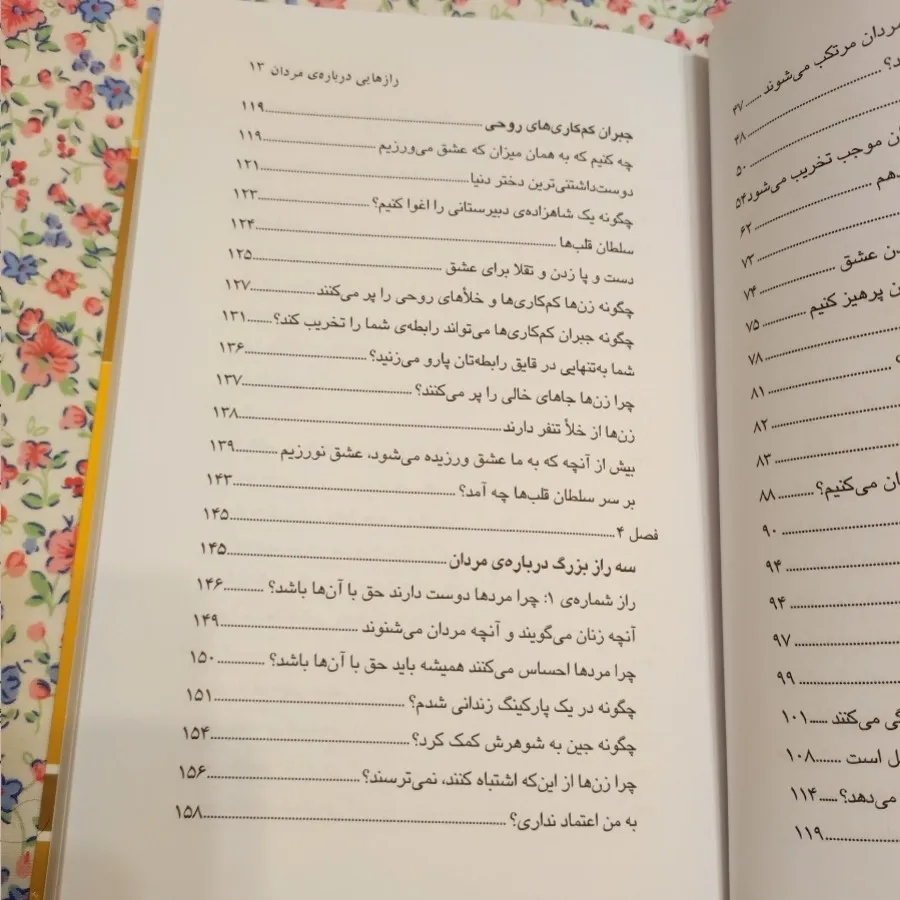 مردان مرتکب می‌شوند ......۴۷
د؟ ......۴۸
......۵۰
ن موجب تخریب می‌شود۵۴
دهم ......۶۲
......۷۳
ن عشق ......۷۴
ن پرهیز کنیم ......۷۵
......۷۸
؟ ......۸۱
......۸۲
......۸۳
ان می‌کنیم؟ ......۸۸
......۹۰
......۹۴
......۹۴
......۹۷
......۹۹
گی می‌کنند ......۱۰۱
ل است ......۱۰۸
می‌دهد؟ ......۱۱۴
......۱۱۹
رازهایی درباره‌ی مردان ۱۳
جبران کم‌کاری‌های روحی ......۱۱۹
چه کنیم که به همان میزان که عشق می‌ورزیم ......۱۱۹
دوست‌داشتنی‌ترین دختر دنیا ......۱۲۱
چگونه یک شاهزاده‌ی دبیرستانی را اغوا کنیم؟ ......۱۲۳
سلطان قلب‌ها ......۱۲۴
دست و پا زدن و تقلا برای عشق ......۱۲۵
چگونه زن‌ها کم‌کاری‌ها و خلأهای روحی را پر می‌کنند ......۱۲۷
چگونه جبران کم‌کاری‌ها می‌تواند رابطه‌ی شما را تخریب کند؟ ......۱۳۱
شما به‌تنهایی در قایق رابطه‌تان پارو می‌زنید؟ ......۱۳۶
چرا زن‌ها جاهای خالی را پر می‌کنند؟ ......۱۳۷
زن‌ها از خلأ تنفر دارند ......۱۳۸
بیش از آنچه که به ما عشق ورزیده می‌شود، عشق نورزیم ......۱۳۹
بر سر سلطان قلب‌ها چه آمد؟ ......۱۴۳
فصل ۴ ......۱۴۵
سه راز بزرگ درباره‌ی مردان ......۱۴۵
راز شماره‌ی ۱: چرا مردها دوست دارند حق با آن‌ها باشد؟ ......۱۴۶
آنچه زنان می‌گویند و آنچه مردان می‌شنوند ......۱۴۹
چرا مردها احساس می‌کنند همیشه باید حق با آن‌ها باشد؟ ......۱۵۰
چگونه در یک پارکینگ زندانی شدم؟ ......۱۵۱
چگونه جین به شوهرش کمک کرد؟ ......۱۵۴
چرا زن‌ها از این‌که اشتباه کنند، نمی‌ترسند؟ ......۱۵۶
به من اعتماد نداری؟ ......۱۵۸